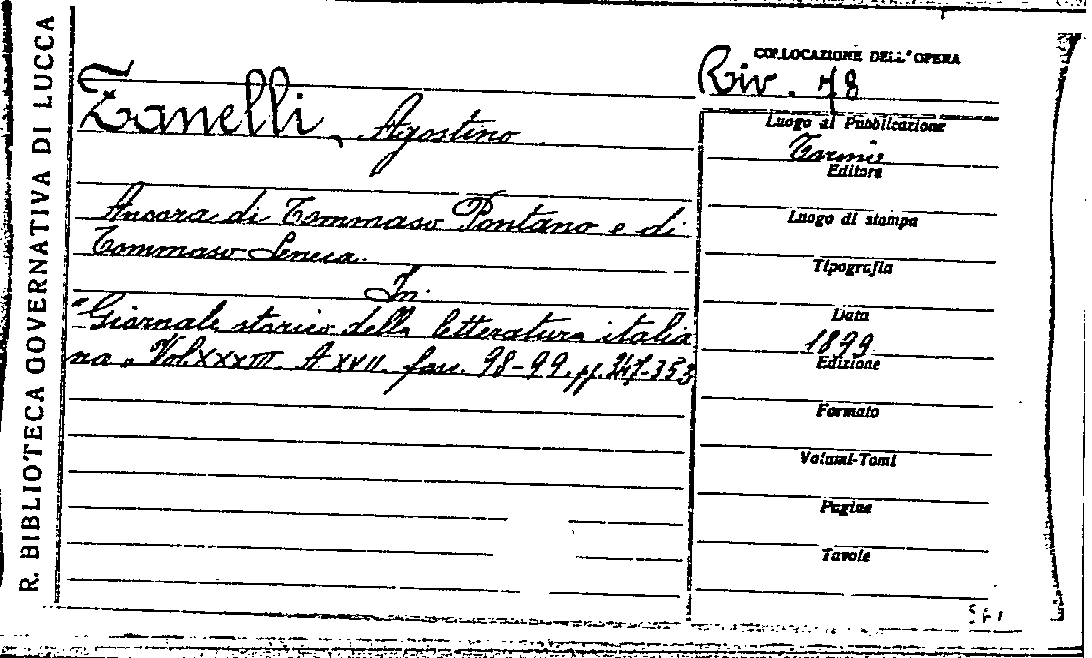 R. BIBLIOTECA GOVERNATIVA DI LUCCA
Zanelli, Agostino
Ancora di Tommaso Pontano e di
Tommaso Seneca.
In:
"Giornale storico della letteratura italia
na" Vol. XXXIII. A XVII. fasc. 98-99. pp. 347-353
COLLOCAZIONE DELL'OPERA
Riv. 78
Luogo di Pubblicazione
Torino
Editore
Luogo di stampa
Tipografia
Data
1899
Edizione
Formato
Volumi-Tomi
Pagine
Tavole